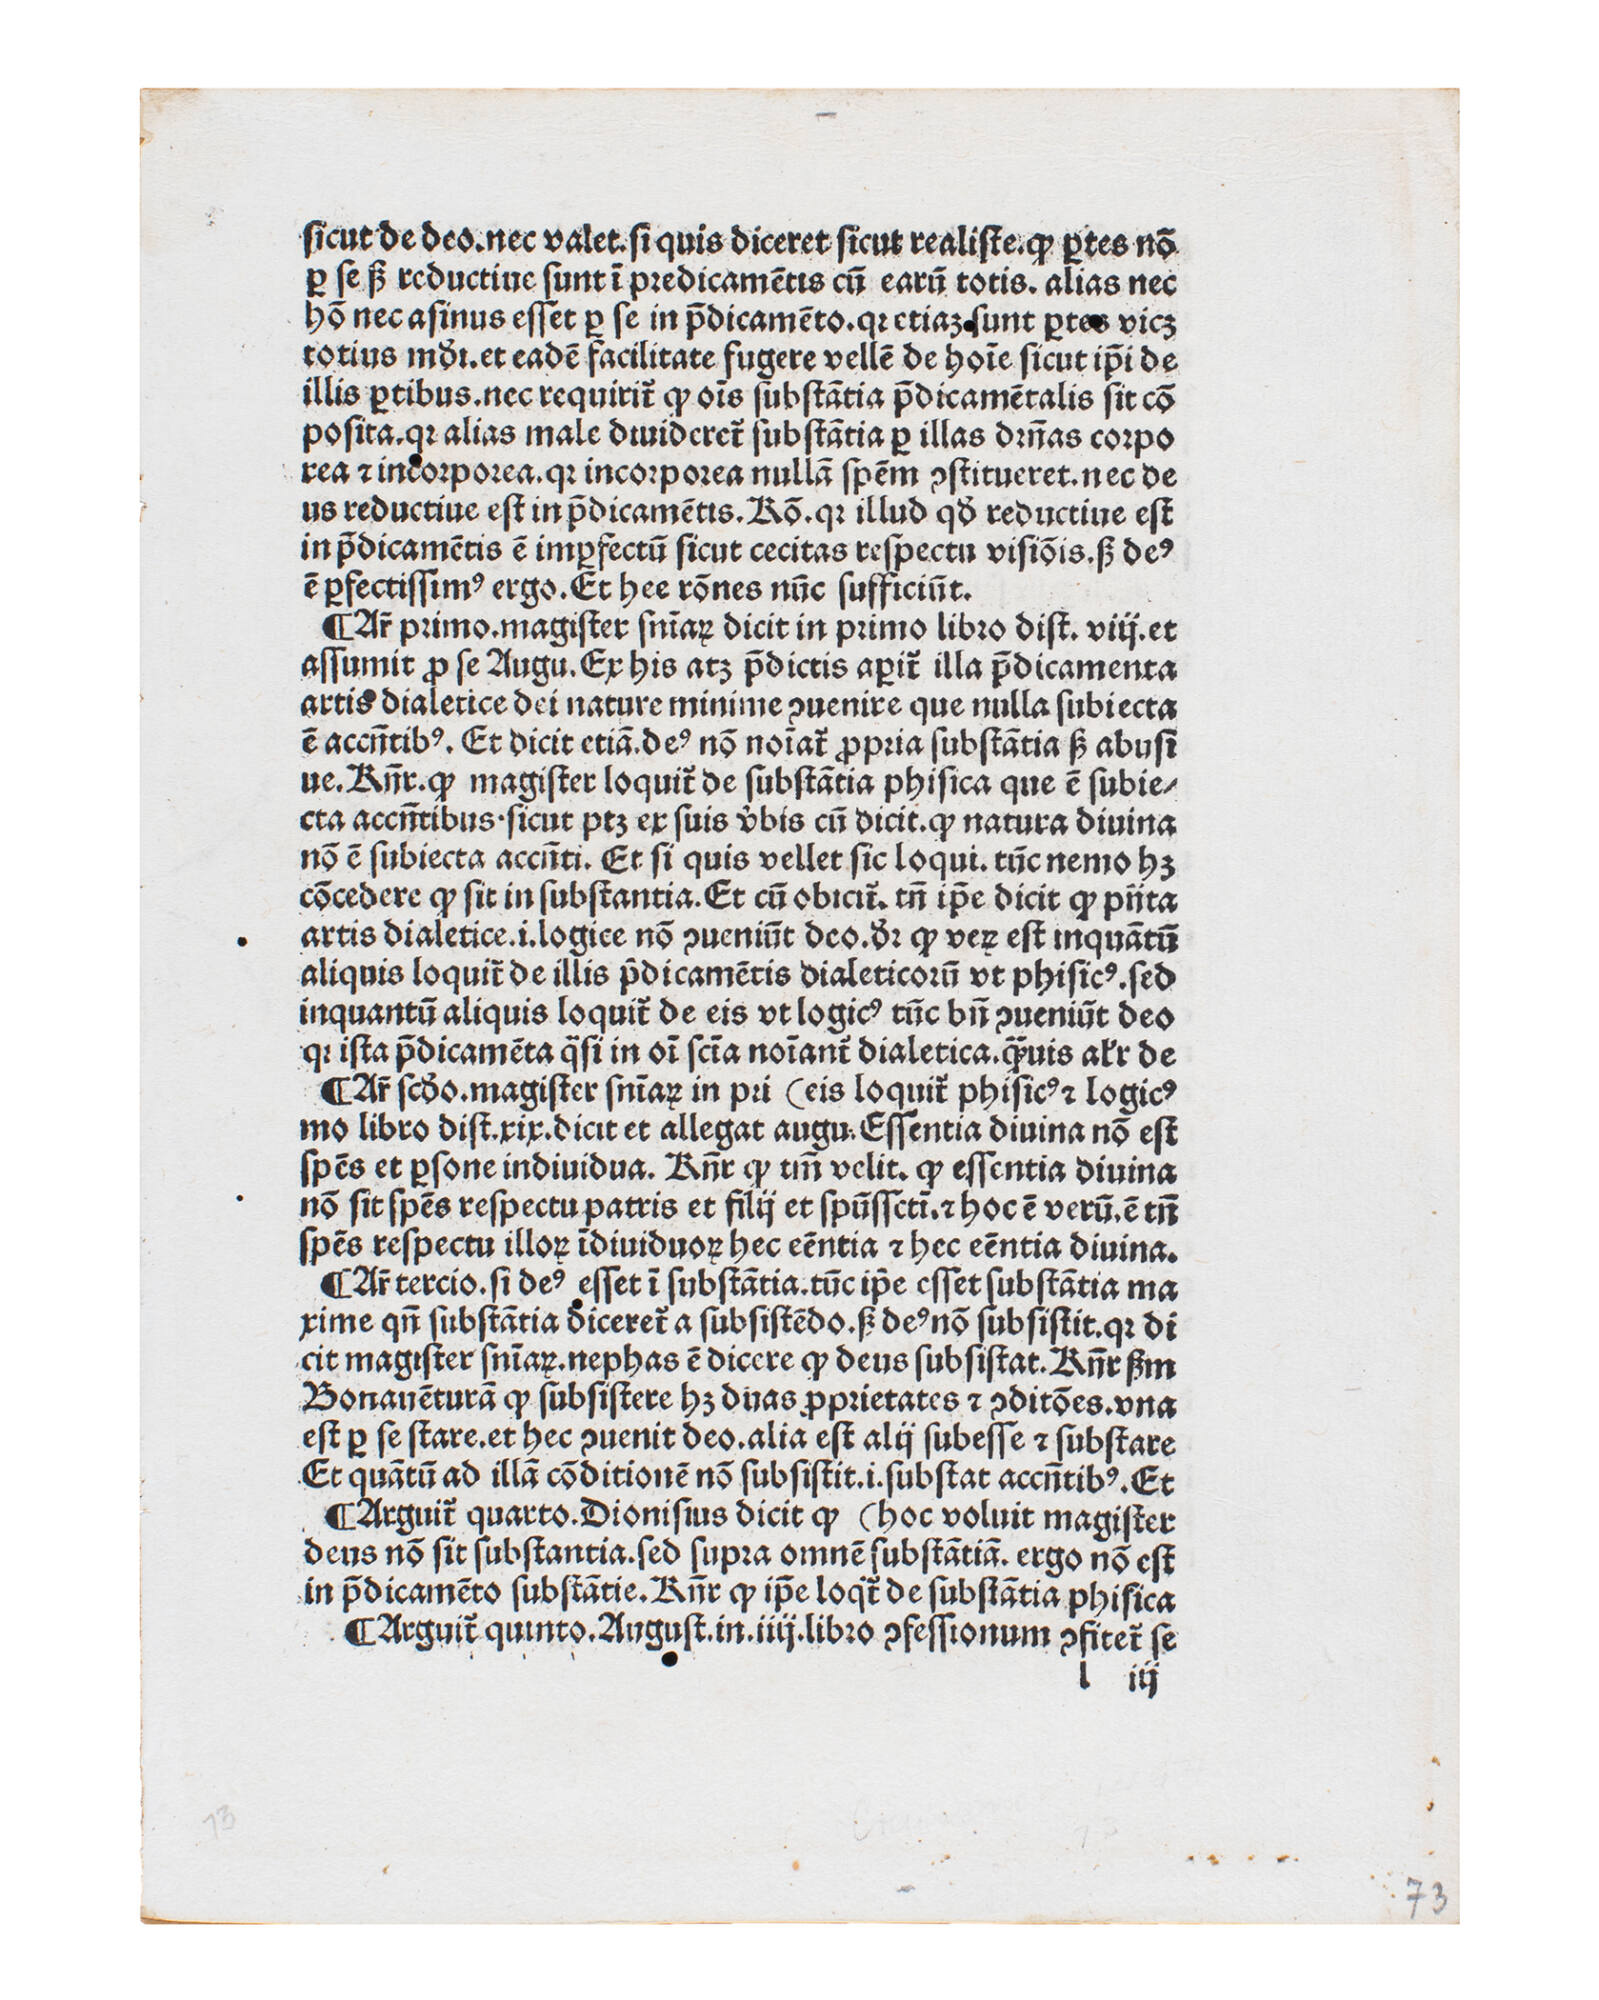 sicut de deo.nec valet.si quis diceret sicut realiste.ꝙ ꝑtes nō
ꝑ se ꝭ reductiue sunt ī predicamētis cū earū totis. alias nec
hō nec asinus esset ꝑ se in p̄dicamēto.qꝛ etiaꝫ sunt ꝑtes vicꝫ
totius mūdi.et eadē facilitate fugere vellē de hoīe sicut ip̄i de
illis ꝑtibus.nec requirit̃ ꝙ oīs substātia p̄dicamētalis sit cō
posita.qꝛ alias male diuideret̃ substātia ꝑ illas drn̄as corpo
rea ⁊ incorporea.qꝛ incorporea nullā spēm ↄstitueret.nec de
us reductiue est in p̄dicamētis. Rō.qꝛ illud qđ reductiue est
in p̄dicamētis ē imꝑfectū sicut cecitas respectu visiōis.ꝭ deꝰ
ē ꝑfectissimꝰ ergo. Et hee rōnes nūc sufficiūt.
¶Ar̃ primo.magister sn̄iaꝝ dicit in primo libro dist. viij.et
assumit ꝓ se Augu. Ex his atꝫ p̄dictis aꝑit̃ illa p̄dicamenta
artis dialetice dei nature minime ↄuenire que nulla subiecta
ē accn̄tibꝰ. Et dicit etiā.deꝰ nō noīat̃ ꝓpria substātia ꝭ abusi
ue. Rn̄r.ꝙ magister loquit̃ de substātia phisica que ē subie/
cta accn̄tibus.sicut ptꝫ ex suis v̓bis cū dicit.ꝙ natura diuina
nō ē subiecta accn̄ti. Et si quis vellet sic loqui. tūc nemo hꝫ
cōcedere ꝙ sit in substantia. Et cū obicit̃. tn̄ ip̄e dicit ꝙ pn̄ta
artis dialetice.i.logice nō ↄueniūt deo.đr ꝙ veꝝ est inquātū
aliquis loquit̃ de illis p̄dicamētis dialeticorū vt phisicꝰ.sed
inquantū aliquis loquit̃ de eis vt logicꝰ tūc bn̄ ↄueniūt deo
qꝛ ista p̄dicamēta q̈si in oī scīa noīant̃ dialetica.q̈̄uis al̓r de
¶Ar̃ scđo.magister sn̄iaꝝ in pri (eis loquit̃ phisicꝰ ⁊ logicꝰ
mo libro dist.xix.dicit et allegat augu. Essentia diuina nō est
spēs et ꝑsone indiuidua. Rn̄r ꝙ tm̄ velit. ꝙ essentia diuina
nō sit spēs respectu patris et filij et spūssctī.⁊ hoc ē verū.ē tn̄
spēs respectu illoꝝ īdiuiduoꝝ hec eēntia ⁊ hec eēntia diuina.
¶Ar̃ tercio.si deꝰ esset ī substātia.tūc ip̄e esset substātia ma
xime qn̄ substātia diceret̃ a subsistēdo.ꝭ deꝰ nō subsistit.qꝛ di
cit magister sn̄iaꝝ.nephas ē dicere ꝙ deus subsistat. Rn̄r ꝭm
Bonauēturā ꝙ subsistere hꝫ duas ꝓprietates ⁊ ↄditōes.vna
est ꝑ se stare.et hec ↄuenit deo.alia est alij subesse ⁊ substare
Et quātū ad illā cōditionē nō subsistit.i.substat accn̄tibꝰ. Et
¶Arguit̃ quarto.Dionisius dicit ꝙ (hoc voluit magister
deus nō sit substantia.sed supra omnē substātiā. ergo nō est
in p̄dicamēto substātie. Rn̄r ꝙ ip̄e loq̇t̃ de substātia phisica
¶Arguit̃ quinto.August.in.iiij.libro ↄfessionum ↄfitet̃ se
l iij
73
73